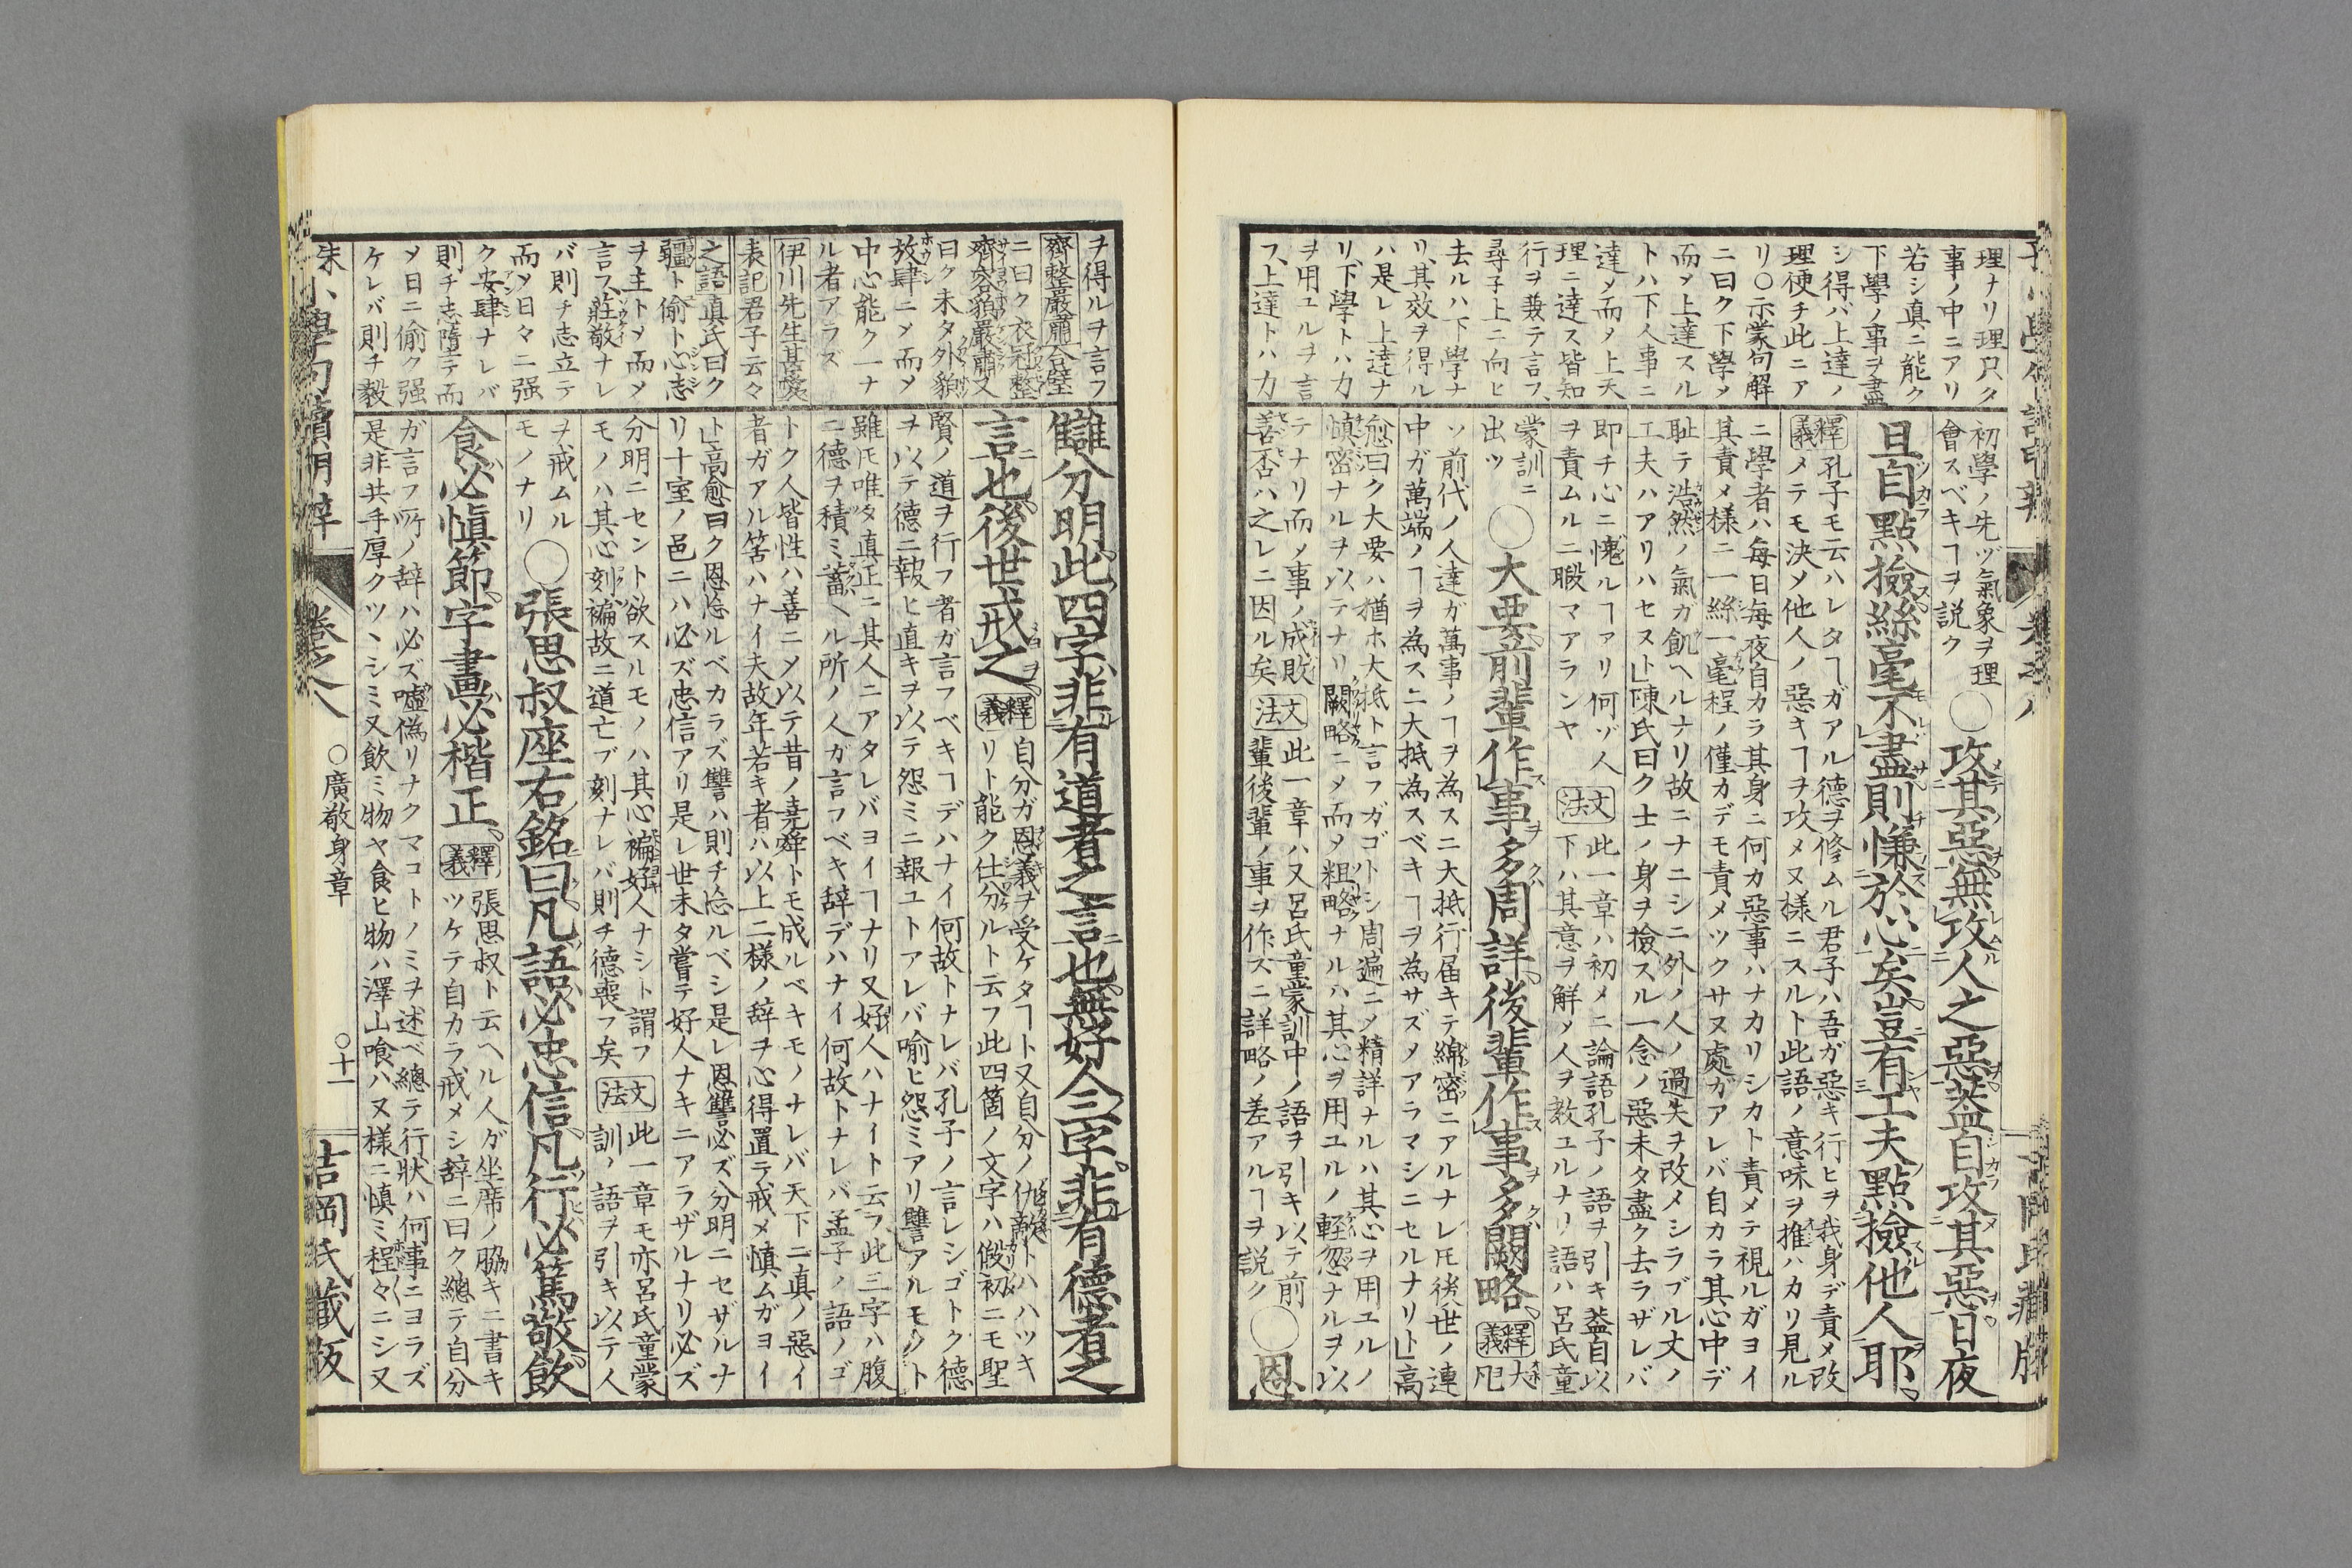 理ナリ理只タ
事ノ中ニアリ
若シ真ニ能ク
下學ノ事ヲ盡
シ得バ上達ノ
理便チ此ニア
リ○示蒙句解
ニ曰ク下學メ
而メ上達スル
トハ下人事ニ
達メ而メ上天
理ニ達ス皆知
行ヲ兼テ言フ、
尋子上ニ向ヒ
去ルハ下學ナ
リ、其效ヲ得ル
ハ是レ上達ナ
リ、下學トハ力
ヲ用ユルヲ言
フ、上達トハ力
初學ノ先ヅ氣象ヲ理
會スベキヿヲ説ク
○攻其惡無攻人之惡蓋自攻其惡日夜
且自點撿絲毫不盡則慊於心矣豈有工夫點撿他人耶
釋義
孔子モ云ハレタヿガアル德ヲ修ムル君子ハ吾ガ惡キ行ヒヲ我身デ責メ改
メテモ決メ他人ノ惡キヿヲ攻メヌ様ニスルト此語ノ意味ヲ推ハカリ見ル
ニ學者ハ毎日毎夜自カラ其身ニ何カ惡事ハナカリシカト責メテ視ルガヨイ
其責メ様ニ一絲一毫程ノ僅カデモ責メツクサヌ處ガアレバ自カラ其心中デ
耻テ浩然ノ氣ガ飢ヘルナリ故ニナニシニ外ノ人ノ過失ヲ改メシラブル丈ノ
工夫ハアリハセヌト」陳氏曰ク士ノ身ヲ撿スル一念ノ惡未タ盡ク去ラザレバ
即チ心ニ愧ルヿアリ何ヅ人
ヲ責ムルニ暇マアランヤ
文法
此一章ハ初メニ論語孔子ノ語ヲ引キ蓋自以
下ハ其意ヲ解メ人ヲ教ユルナリ語ハ呂氏童
蒙訓ニ
出ツ
○大要前輩作事多周詳後輩作事多闕略
釋義
大
凡
ソ前代ノ人達ガ萬事ノヿヲ為スニ大抵行届キテ綿密ニアルナレ𪜈後世ノ連
中ガ萬端ノヿヲ為スニ大抵為スベキヿヲ為サズメアラマシニセルナリト」高
愈曰ク大要ハ猶ホ大抵ト言フガゴトシ周遍ニメ精詳ナルハ其心ヲ用ユルノ
慎密ナルヲ以テナリ闕略ニメ而メ粗略ナルハ其心ヲ用ユルノ輕忽ナルヲ以
テナリ而メ事ノ成敗
善否ハ之レニ因ル矣
文法
此一章ハ又呂氏童蒙訓中ノ語ヲ引キ以テ前
輩後輩ノ事ヲ作スニ詳略ノ差アルヿヲ説ク
○恩
ヲ得ルヲ言フ
齊整嚴肅合璧
ニ曰ク衣冠整
齊容貌嚴肅又
曰ク未タ外貌
放肆ニメ而メ
中心能ク一ナ
ル者アラズ
伊川先生甚愛
表記君子云々
之語真氏曰ク
彊ト偷ト心志
ヲ主トメ而メ
言フ、莊敬ナレ
バ則チ志立テ
而メ日々ニ强
ク安肆ナレバ
則チ志惰テ而
メ日ニ偷ク强
ケレバ則チ毅
讎分明此四字非有道者之言也無好人三字非有德者之
言也後世戒之
釋義
自分ガ恩義ヲ受ケタヿト又自分ノ仇敵トハハツキ
リト能ク仕分ルト云フ此四箇ノ文字ハ假初ニモ聖
賢ノ道ヲ行フ者ガ言フベキヿデハナイ何故トナレバ孔子ノ言レシゴトク德
ヲ以テ德ニ報ヒ直キヲ以テ怨ミニ報ユトアレバ喻ヒ怨ミアリ讐アルモクト
雖𪜈唯タ真正ニ其人ニアタレバヨイヿナリ又好人ハナイト云フ此三字ハ腹
ニ德ヲ積ミ蓄ヘル所ノ人ガ言フベキ辞デハナイ何故トナレバ孟子ノ語ノゴ
トク人皆性ハ善ニメ以テ昔ノ堯舜トモ成ルベキモノナレバ天下ニ真ノ惡イ
者ガアル筈ハナイ夫故年若キ者ハ以上二様ノ辞ヲ心得置テ戒メ慎ムガヨイ
ト」高愈曰ク恩怨ルベカラズ讐ハ則チ怨ルベシ是レ恩讐必ズ分明ニセザルナ
リ十室ノ邑ニハ必ズ忠信アリ是レ世未タ嘗テ好人ナキニアラザルナリ必ズ
分明ニセント欲スルモノハ其心褊好人ナシト謂フ
モノハ其心刻褊故ニ道亡ブ刻ナレバ則チ德喪フ矣
文法
此一章モ亦呂氏童蒙
訓ノ語ヲ引キ以テ人
ヲ戒ムル
モノナリ
○張思叔座右銘曰凡語必忠信凡行必篤敬飲
食必愼節字畫必楷正
釋義
張思叔ト云ヘル人ガ坐席ノ脇キニ書キ
ツケテ自カラ戒メシ辞ニ曰ク總テ自分
ガ言フ所ノ辞ハ必ズ嘘僞リナクマコトノミヲ述ベ總テ行狀ハ何事ニヨラズ
是非共手厚クツヽシミ又飲ミ物ヤ食ヒ物ハ澤山喰ハヌ様ニ慎ミ程々ニシ又
卷之八
○廣敬身章
○十一
吉岡氏藏版